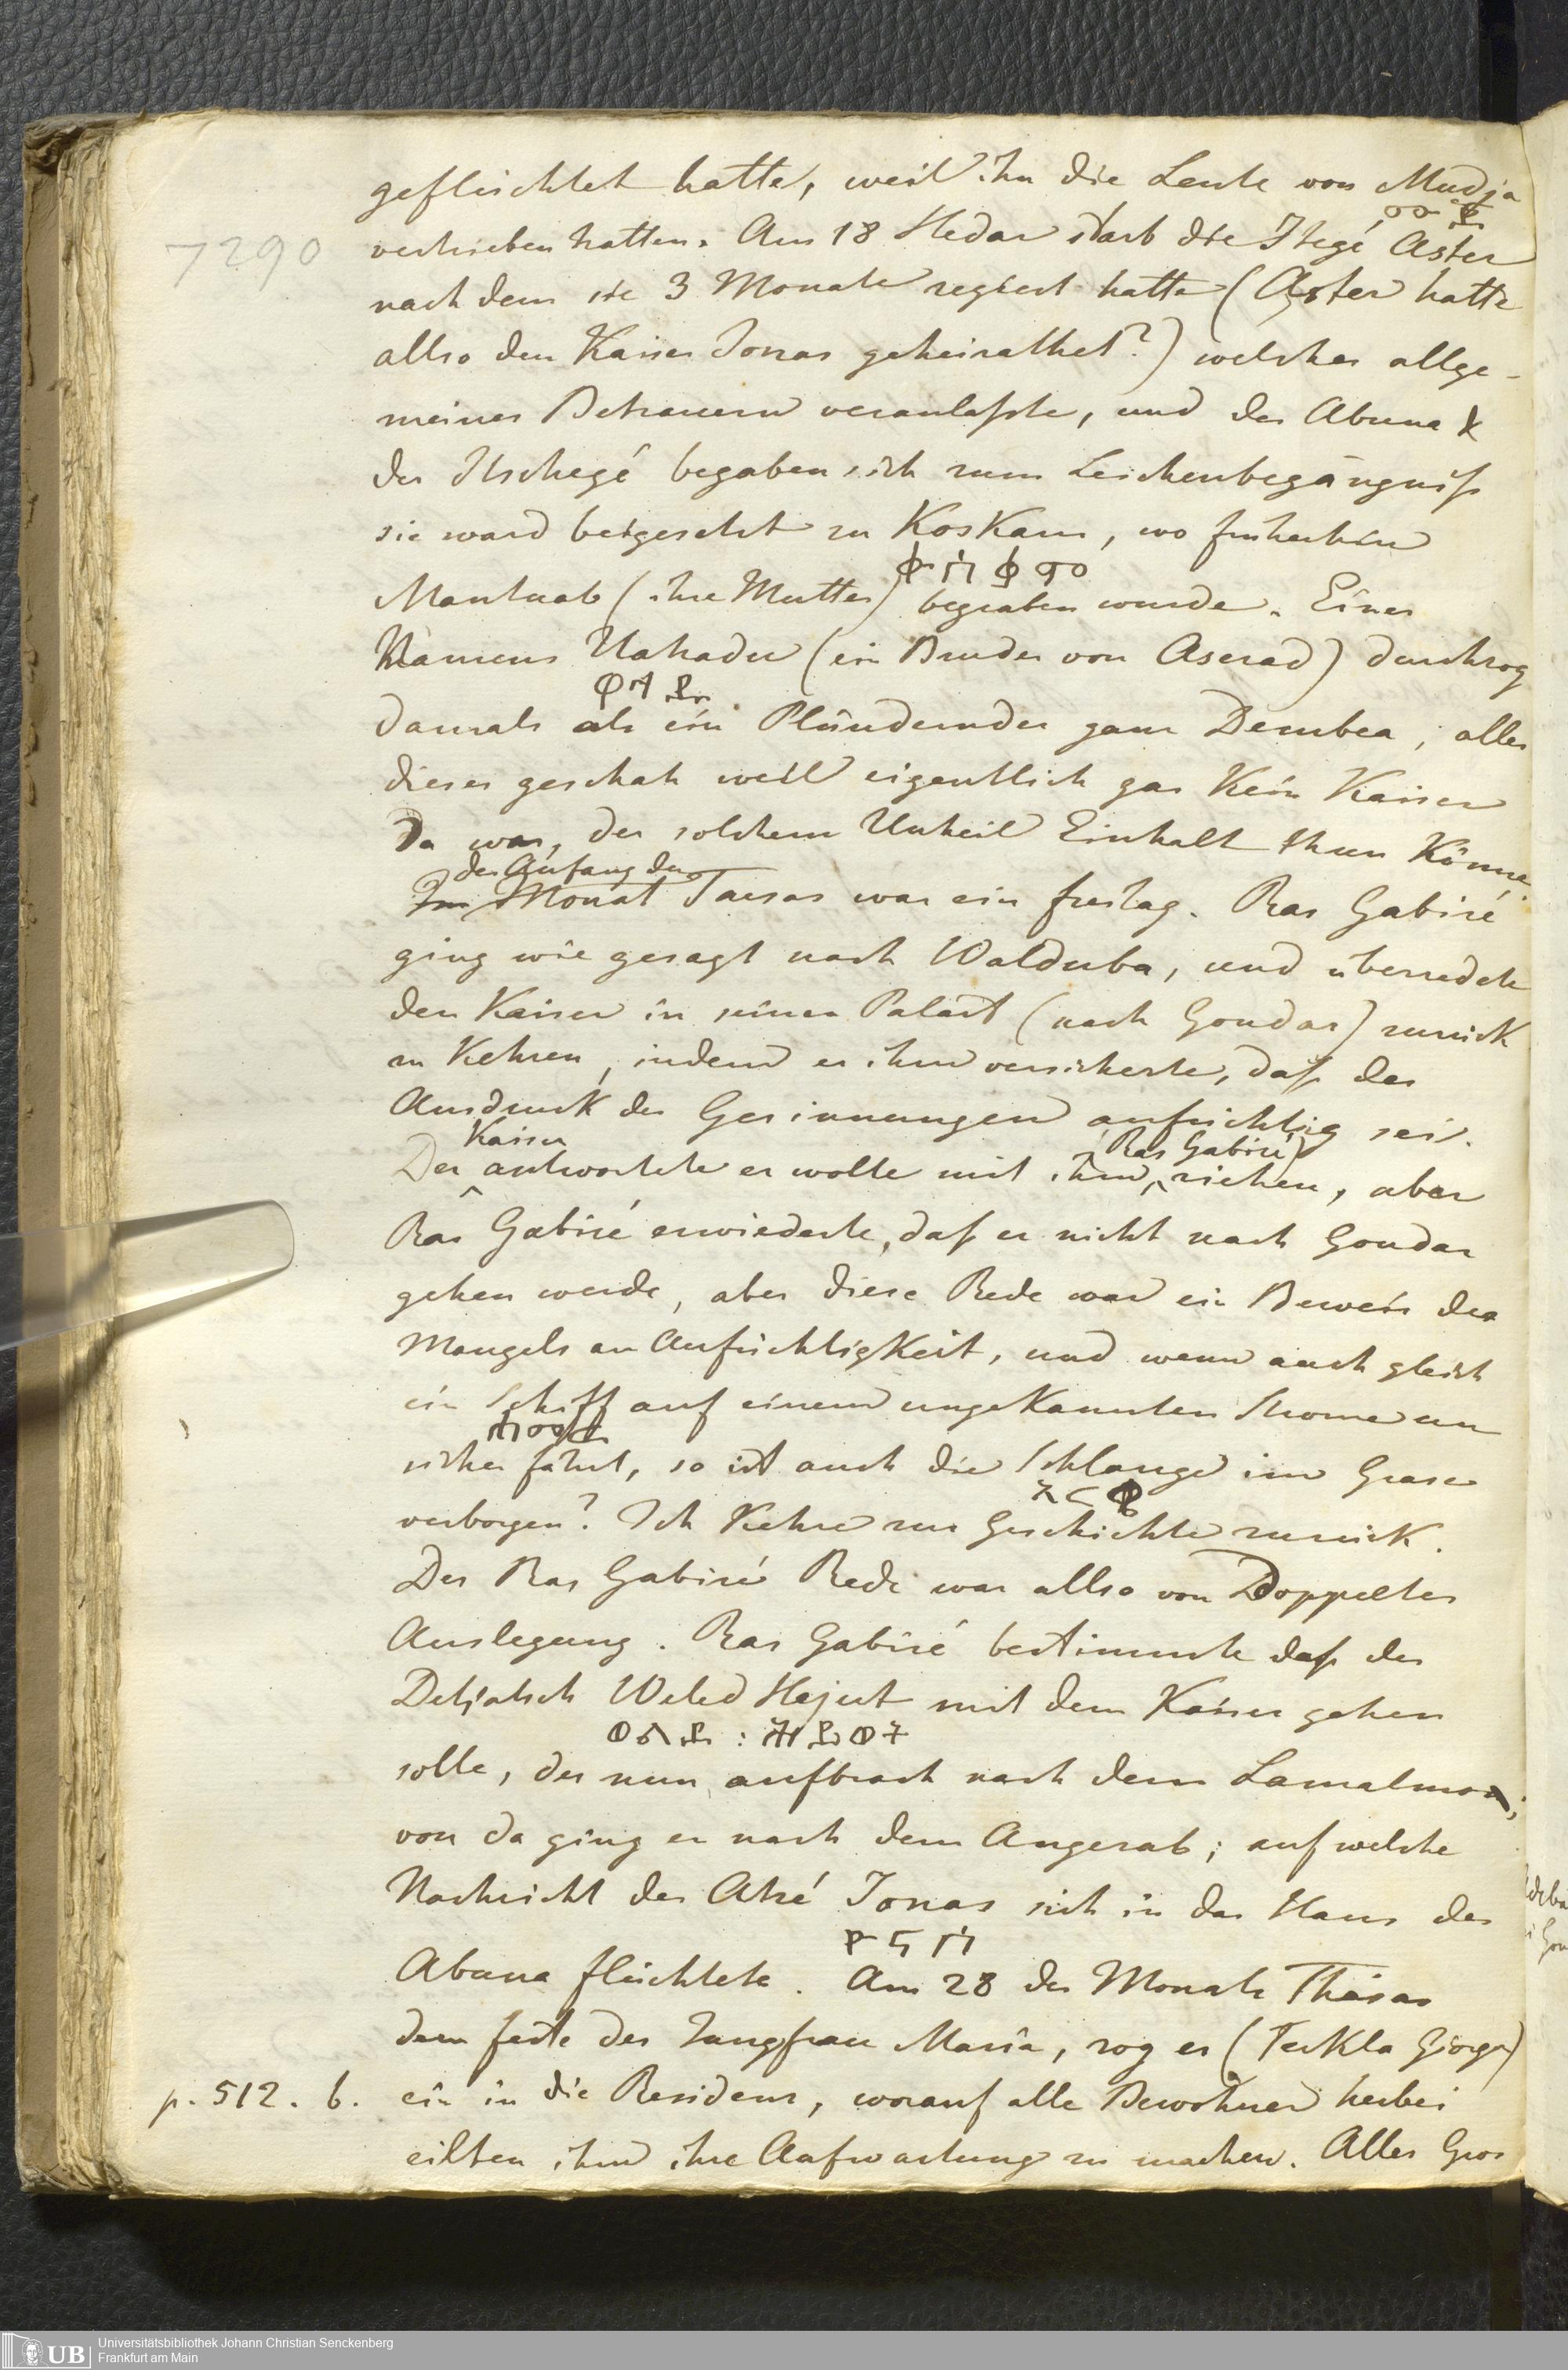 geflüchtet hatte, weil ihn die Leute von Mudja
7290
vertrieben hatten. Am 18 Hedar starb die Itegé Aster
nach dem sie 3 Monate regiert hatte (Aster hatte
allso den Kaiser Jonas geheirathet?) welches allge-
meines Betrauern veranlaßte, und der Abuna &
der Itschegé begaben sich zum Leichenbegängniß
sie ward beigesetzt zu Koskam, wo früherhin
ቍስቋም
Mantuab (ihre Mutter) begraben wurde. Einer
Namens Uahadu (ein Bruder von Aserad) durchzog
damals als ein Plündernder ganz Dembea, alles
dieses geschah weil eigentlich gar Kein Kaiser
Da war, der solchem Unheil Einhalt thun Könne
der Anfang des
Im Monat Taesas war ein freitag. Ras Gabiré
ging wie gesagt nach Walduba, und überredete
den Kaiser in seinen Palast (nach Gondar) zurück
zu Kehren, indem er ihm versicherte, daß der
Ausdruck der Gesinnungen aufrichtig sei.
Kaiser
Ras Gabiré
Der antwortete er wolle mit ihm ziehen, aber
Ras Gabiré erwiederte, daß er nicht nach Gondar
gehen werde, aber diese Rede war ein Beweis des
Mangels an Aufrichtigkeit, und wenn auch gleich
ein Schiff auf einem ungekannten Strome un
sicher fährt, so ist auch die Schlange im Grase
verborgen? Ich Kehre zur Geschichte zurück.
Des Ras Gabiré Rede war allso von Doppelter
Auslegung. Ras Gabiré bestimmte daß der
Detjatsch Weled Hejut mit dem Kaiser gehen
solle, der nun aufbrach nach dem Lamalmon,
von da ging er nach dem Angerab; auf welche
Nachricht der Atzé Jonas sich in das Haus des
ዮናስ
Abuna flüchtete. Am 28 des Monats Thesas
dem feste der Jungfrau Maria, zog er (Teckla Giorgis)
p. 512. b. ein in die Residenz, worauf alle Bewohner herbei
eilten ihm ihre Aufwartung zu machen. Alles Gros
UB Universitätsbibliothek Johann Christian Senckenberg
Frankfurt am Main